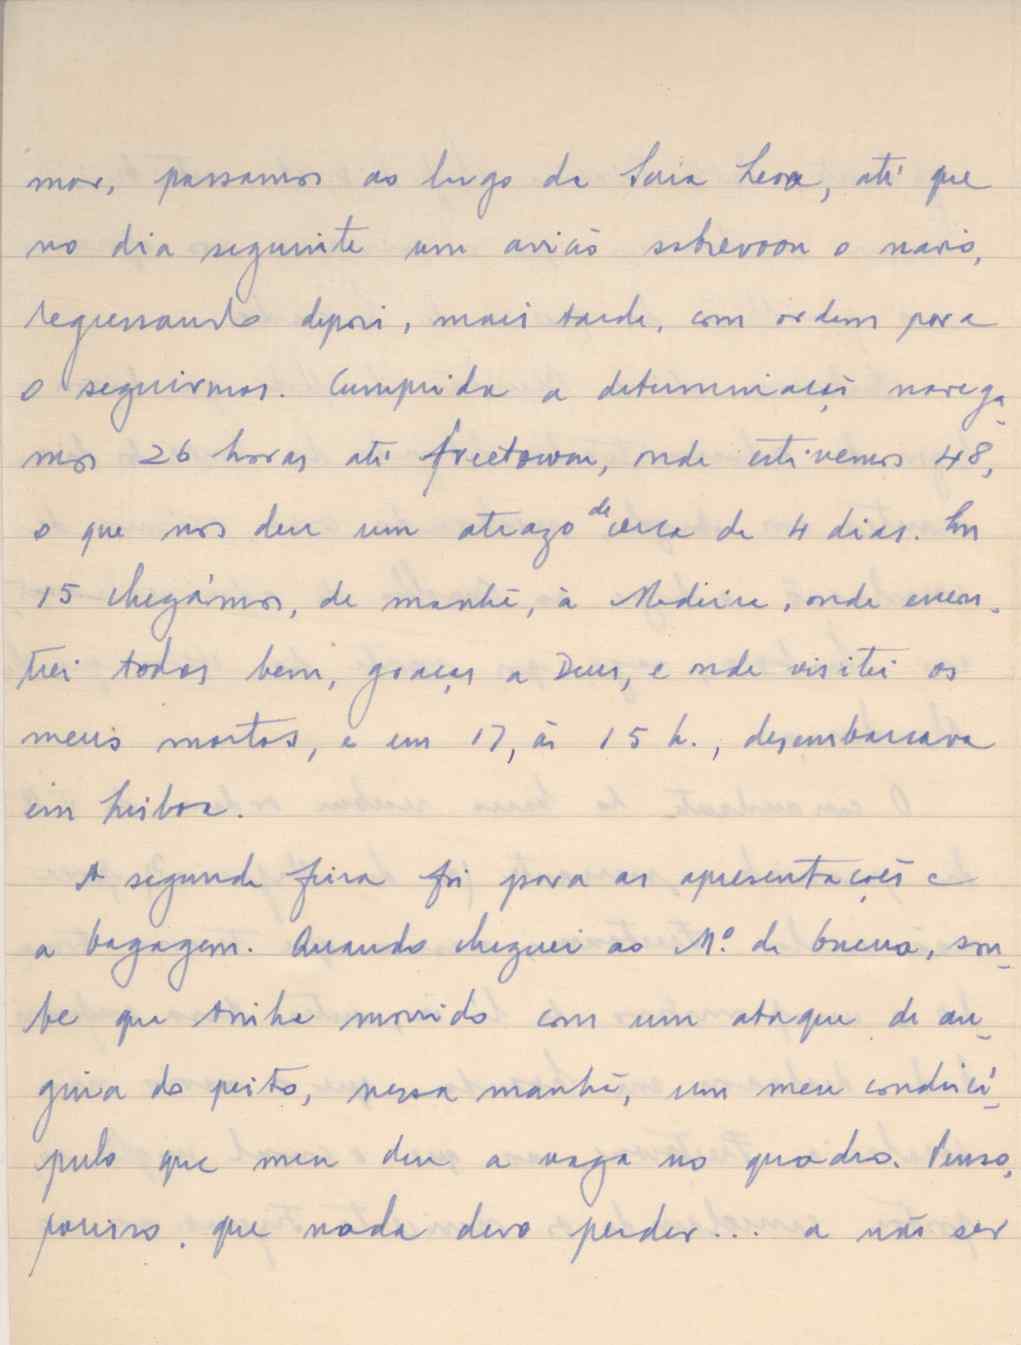 mos, passamos ao largo da Serra Leoa, até que
no dia seguinte um avião sobrevoou o navio,
regressando depois, mais tarde, com ordem para
o seguirmos. Cumprida a determinação navega-
mos 26 horas até Freetown, onde estivemos 48,
o que nos deu um atrazo de cerca de 4 dias. Em
15 chegámos, de manhã, à Madeira, onde encon-
trei todos bem, graças a Deus, e onde visitei os
meus mortos, e em 17, às 15 h., desembarcava
em Lisboa.
A segunda feira foi para as apresentações e
a bagagem. Quando cheguei ao Mº. da Guerra, sou-
be que tinha morrido com um ataque de an-
gina do peito, nessa manhã, um meu condiscí-
pulo que me deu a vaga no quadro. Penso,
porisso, que nada devo perder... a não ser